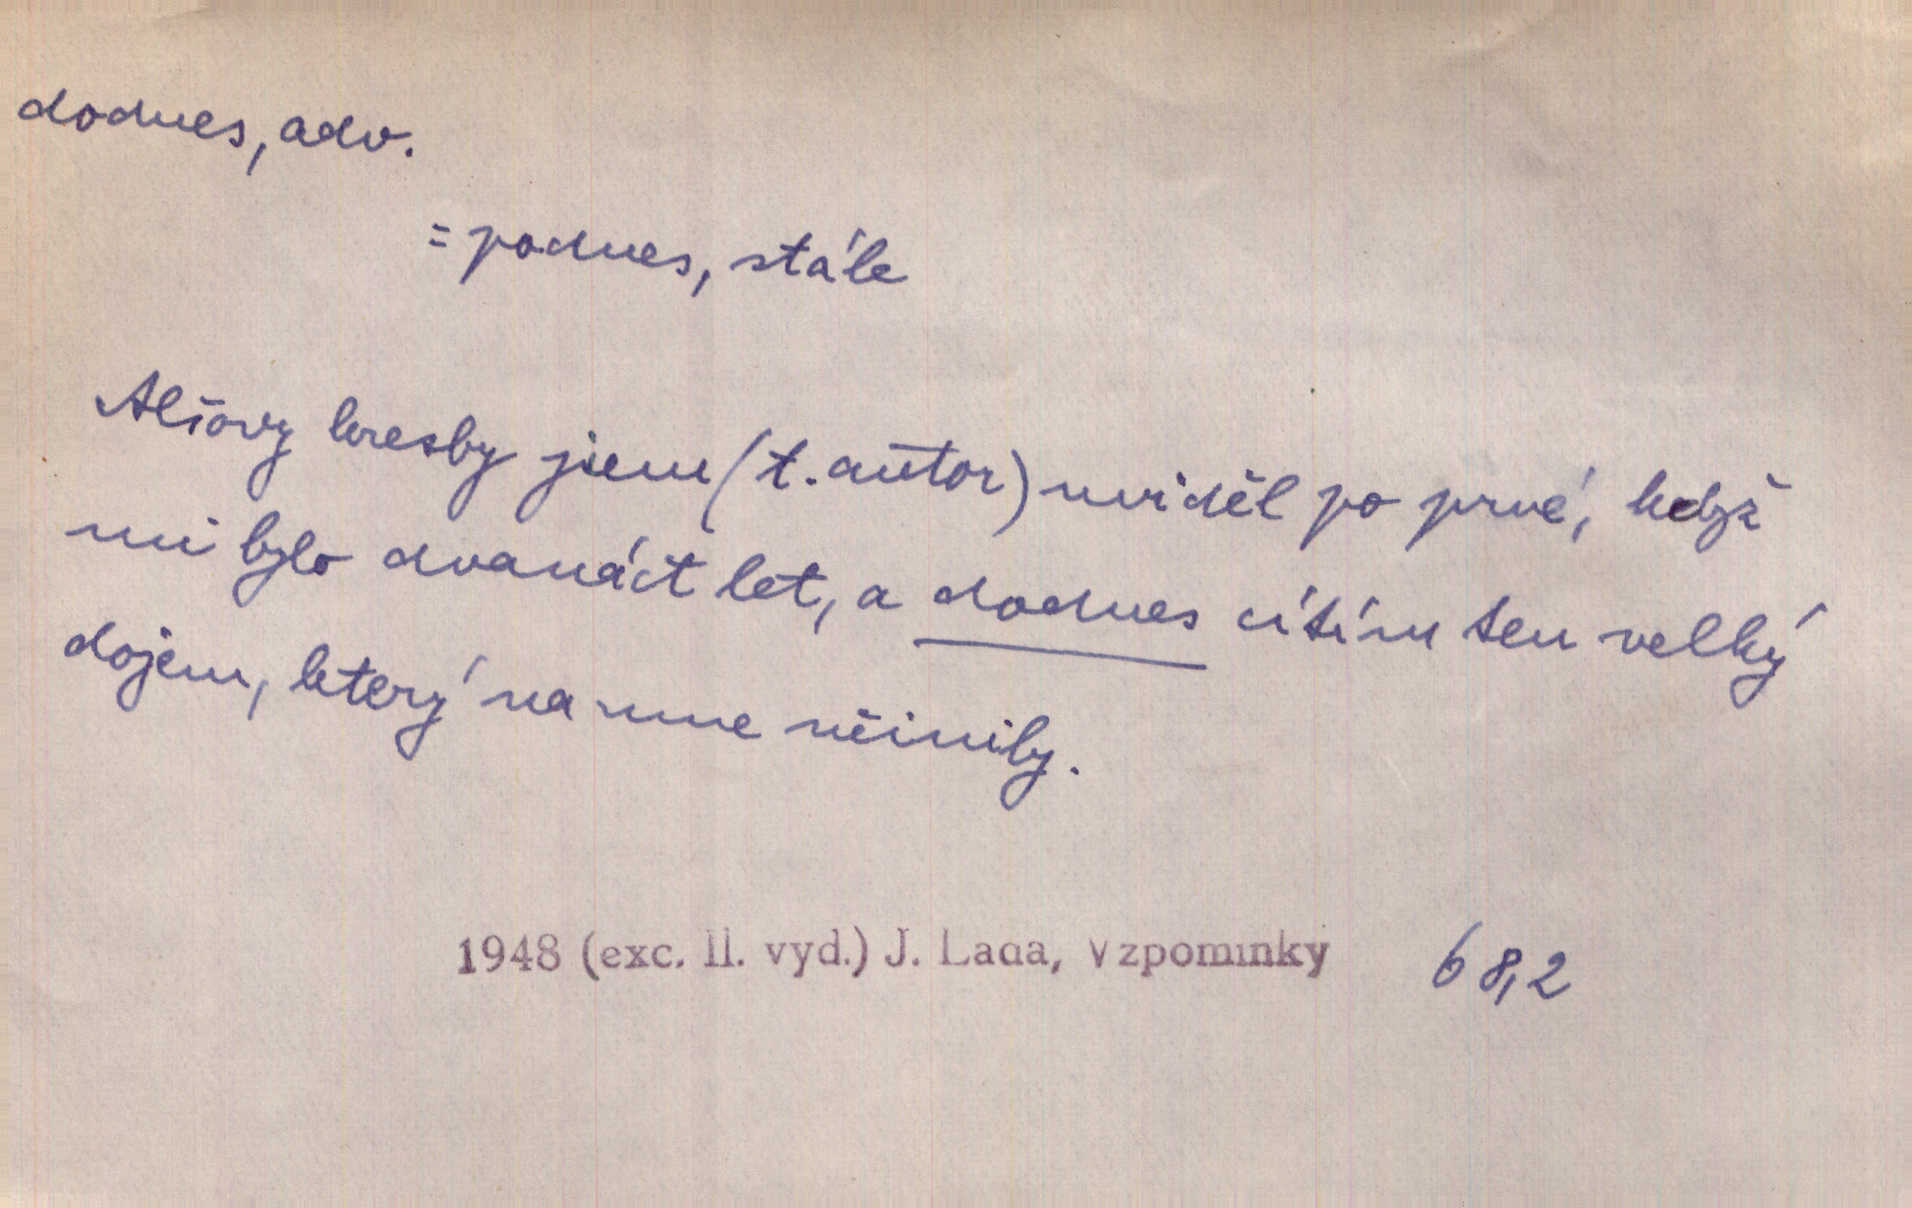 dodnes, adv.
= podnes, stále
Alšovy kresby jsem (t. autor) uviděl po prvé, když
mi bylo dvanáct let, a dodnes cítím ten velký
dojem, který na mne učinily.
1948 (exc. II. vyd.) J. Lada, Vzpomínky 68,2